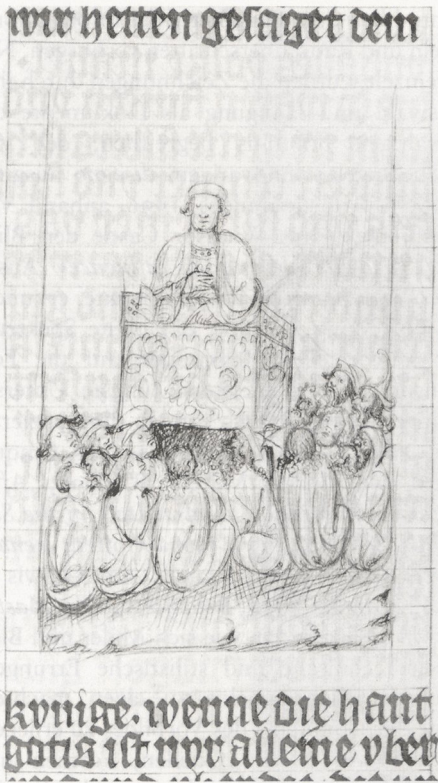 wir hetten gesaget dem
kvnige. wenne die hant
gotis ist nvr alleine vber